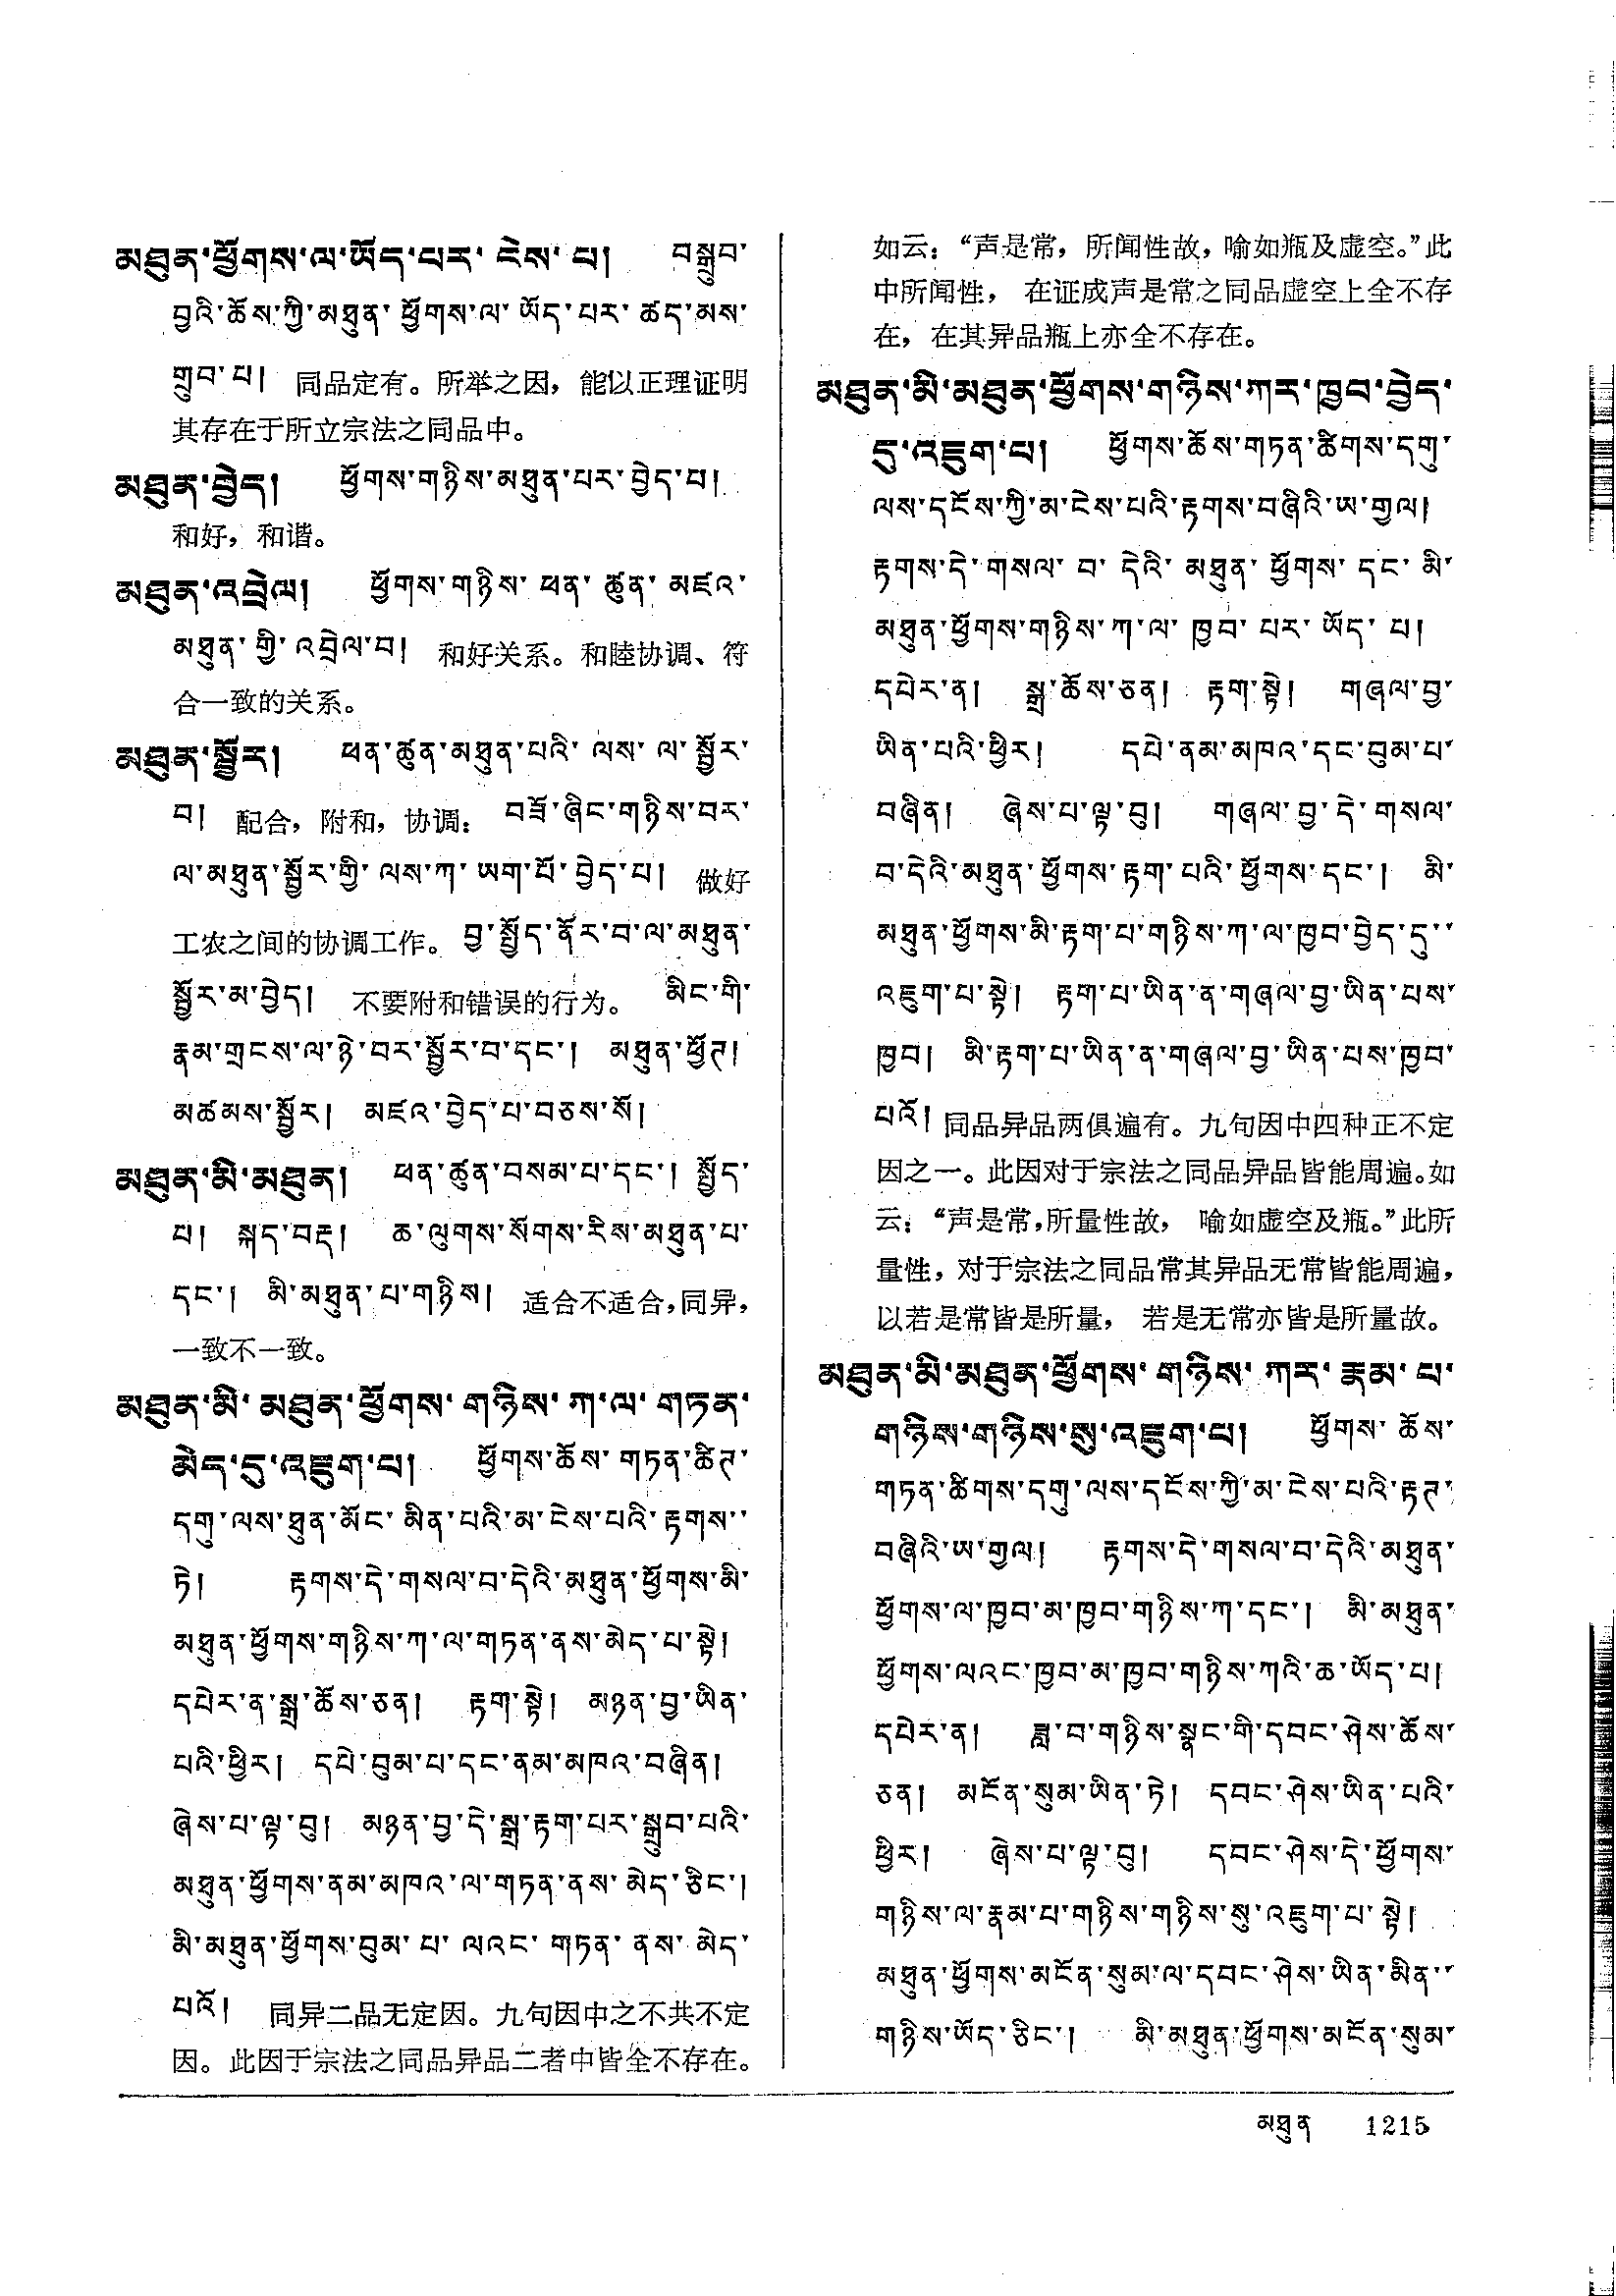 མཐུན་ཕྱོགས་ལ་ཡོད་པར་ ངེས་ པ།  བསྒྲུབ་
བྱའི་ཆོས་ཀྱི་མཐུན་ ཕྱོགས་ལ་ ཡོད་པར་ ཚད་མས་
གྲུབ་པ། 同品定有。所举之因，能以正理证明
其存在于所立宗法之同品中。
མཐུན་བྱེད།  ཕྱོགས་གཉིས་མཐུན་པར་བྱེད་པ།
和好，和谐。
མཐུན་འབྲེལ།  ཕྱོགས་གཉིས་ ཕན་ ཚུན་ མཛའ་
མཐུན་ གྱི་ འབྲེལ་བ། 和好关系。和睦协调、符
合一致的关系。
མཐུན་སྦྱོར།  ཕན་ཚུན་མཐུན་པའི་ ལས་ ལ་ སྦྱོར་
བ། 配合，附和，协调： བཟོ་ཞིང་གཉིས་བར་
ལ་མཐུན་སྦྱོར་གྱི་ ལས་ཀ་ ཡག་པོ་ བྱེད་པ། 做好
工农之间的协调工作。 བྱ་སྤྱོད་ནོར་བ་ལ་མཐུན་
སྦྱོར་མ་བྱེད། 不要附和错误的行为。 མིང་གི་
རྣམ་གྲངས་ལ་ཉེ་བར་སྦྱོར་བ་དང་། མཐུན་ཕྱོཊ།
མཚམས་སྦྱོར། མཛའ་བྱེད་པ་བཅས་སོ།
མཐུན་མི་མཐུན།  ཕན་ཚུན་བསམ་པ་དང་། སྤྱོད་
པ། སྐད་བརྡ། ཆ་ལུགས་སོགས་རིས་མཐུན་པ་
དང་། མི་མཐུན་པ་གཉིས། 适合不适合，同异，
一致不一致。
མཐུན་མི་ མཐུན་ཕྱོགས་ གཉིས་ ཀ་ལ་ གཏན་
མེད་དུ་འཇུག་པ།  ཕྱོགས་ཆོས་ གཏན་ཚིཊ་
དགུ་ལས་ཐུན་མོང་ མིན་པའི་མ་ངེས་པའི་རྟགས་་
ཏེ།  རྟགས་དེ་གསལ་བ་དེའི་མཐུན་ཕྱོགས་མི་
མཐུན་ཕྱོགས་གཉིས་ཀ་ལ་གཏན་ནས་མེད་པ་སྟེ།
དཔེར་ན་སྒྲ་ཆོས་ཅན། རྟག་སྟེ། མཉན་བྱ་ཡིན་
པའི་ཕྱིར། དཔེ་བུམ་པ་དང་ནམ་མཁའ་བཞིན།
ཞེས་པ་ལྟ་བུ། མཉན་བྱ་དེ་སྒྲ་རྟག་པར་སྒྲུབ་པའི་
མཐུན་ཕྱོགས་ནམ་མཁའ་ལ་གཏན་ནས་ མེད་ཅིང་།
མི་མཐུན་ཕྱོགས་བུམ་ པ་ ལའང་ གཏན་ ནས་ མེད་
པའོ། 同异二品无定因。九句因中之不共不定
因。此因于宗法之同品异品二者中皆全不存在。
如云：“声是常，所闻性故，喻如瓶及虚空。”此
中所闻性， 在证成声是常之同品虚空上全不存
在，在其异品瓶上亦全不存在。
མཐུན་མི་མཐུན་ཕྱོགས་གཉིས་ཀར་ཁྱབ་བྱེད་
དུ་འཇུག་པ།  ཕྱོགས་ཆོས་གཏན་ཚིགས་དགུ་
ལས་དངོས་ཀྱི་མ་ངེས་པའི་རྟགས་བཞིའི་ཡ་གྱལ།
རྟགས་དེ་གསལ་ བ་ དེའི་ མཐུན་ ཕྱོགས་ དང་ མི་
མཐུན་ཕྱོགས་གཉིས་ཀ་ལ་ ཁྱབ་ པར་ ཡོད་ པ།
དཔེར་ན། སྒྲ་ཆོས་ཅན། རྟག་སྟེ། གཞལ་བྱ་
ཡིན་པའི་ཕྱིར།  དཔེ་ནམ་མཁའ་དང་བུམ་པ་
བཞིན། ཞེས་པ་ལྟ་བུ། གཞལ་བྱ་དེ་གསལ་
བ་དེའི་མཐུན་ཕྱོགས་རྟག་པའི་ཕྱོགས་དང་། མི་
མཐུན་ཕྱོགས་མི་རྟག་པ་གཉིས་ཀ་ལ་ཁྱབ་བྱེད་དུ་་
འཇུག་པ་སྟེ། རྟག་པ་ཡིན་ན་གཞལ་བྱ་ཡིན་པས་
ཁྱབ། མི་རྟག་པ་ཡིན་ན་གཞལ་བྱ་ཡིན་པས་ཁྱབ་
པའོ། 同品异品两俱遍有。九句因中四种正不定
因之一。此因对于宗法之同品异品皆能周遍。如
云：“声是常，所量性故， 喻如虚空及瓶。”此所
量性，对于宗法之同品常其异品无常皆能周遍，
以若是常皆是所量， 若是无常亦皆是所量故。
མཐུན་མི་མཐུན་ཕྱོགས་ གཉིས་ ཀར་ རྣམ་ པ་
གཉིས་གཉིས་སུ་འཇུག་པ།  ཕྱོགས་ ཆོས་
གཏན་ཚིགས་དགུ་ལས་དངོས་ཀྱི་མ་ངེས་པའི་རྟཊ་
བཞིའི་ཡ་གྱལ།  རྟགས་དེ་གསལ་བ་དེའི་མཐུན་
ཕྱོགས་ལ་ཁྱབ་མ་ཁྱབ་གཉིས་ཀ་དང་། མི་མཐུན་
ཕྱོགས་ལའང་ཁྱབ་མ་ཁྱབ་གཉིས་ཀའི་ཆ་ཡོད་པ།
དཔེར་ན།  ཟླ་བ་གཉིས་སྣང་གི་དབང་ཤེས་ཆོས་
ཅན། མངོན་སུམ་ཡིན་ཏེ། དབང་ཤེས་ཡིན་པའི་
ཕྱིར།  ཞེས་པ་ལྟ་བུ།  དབང་ཤེས་དེ་ཕྱོགས་
གཉིས་ལ་རྣམ་པ་གཉིས་གཉིས་སུ་འཇུག་པ་སྟེ།
མཐུན་ཕྱོགས་མངོན་སུམ་ལ་དབང་ཤེས་ཡིན་མིན་་
གཉིས་ཡོད་ཅིང་།  མི་མཐུན་ཕྱོགས་མངོན་སུམ་
མཐུན  1215